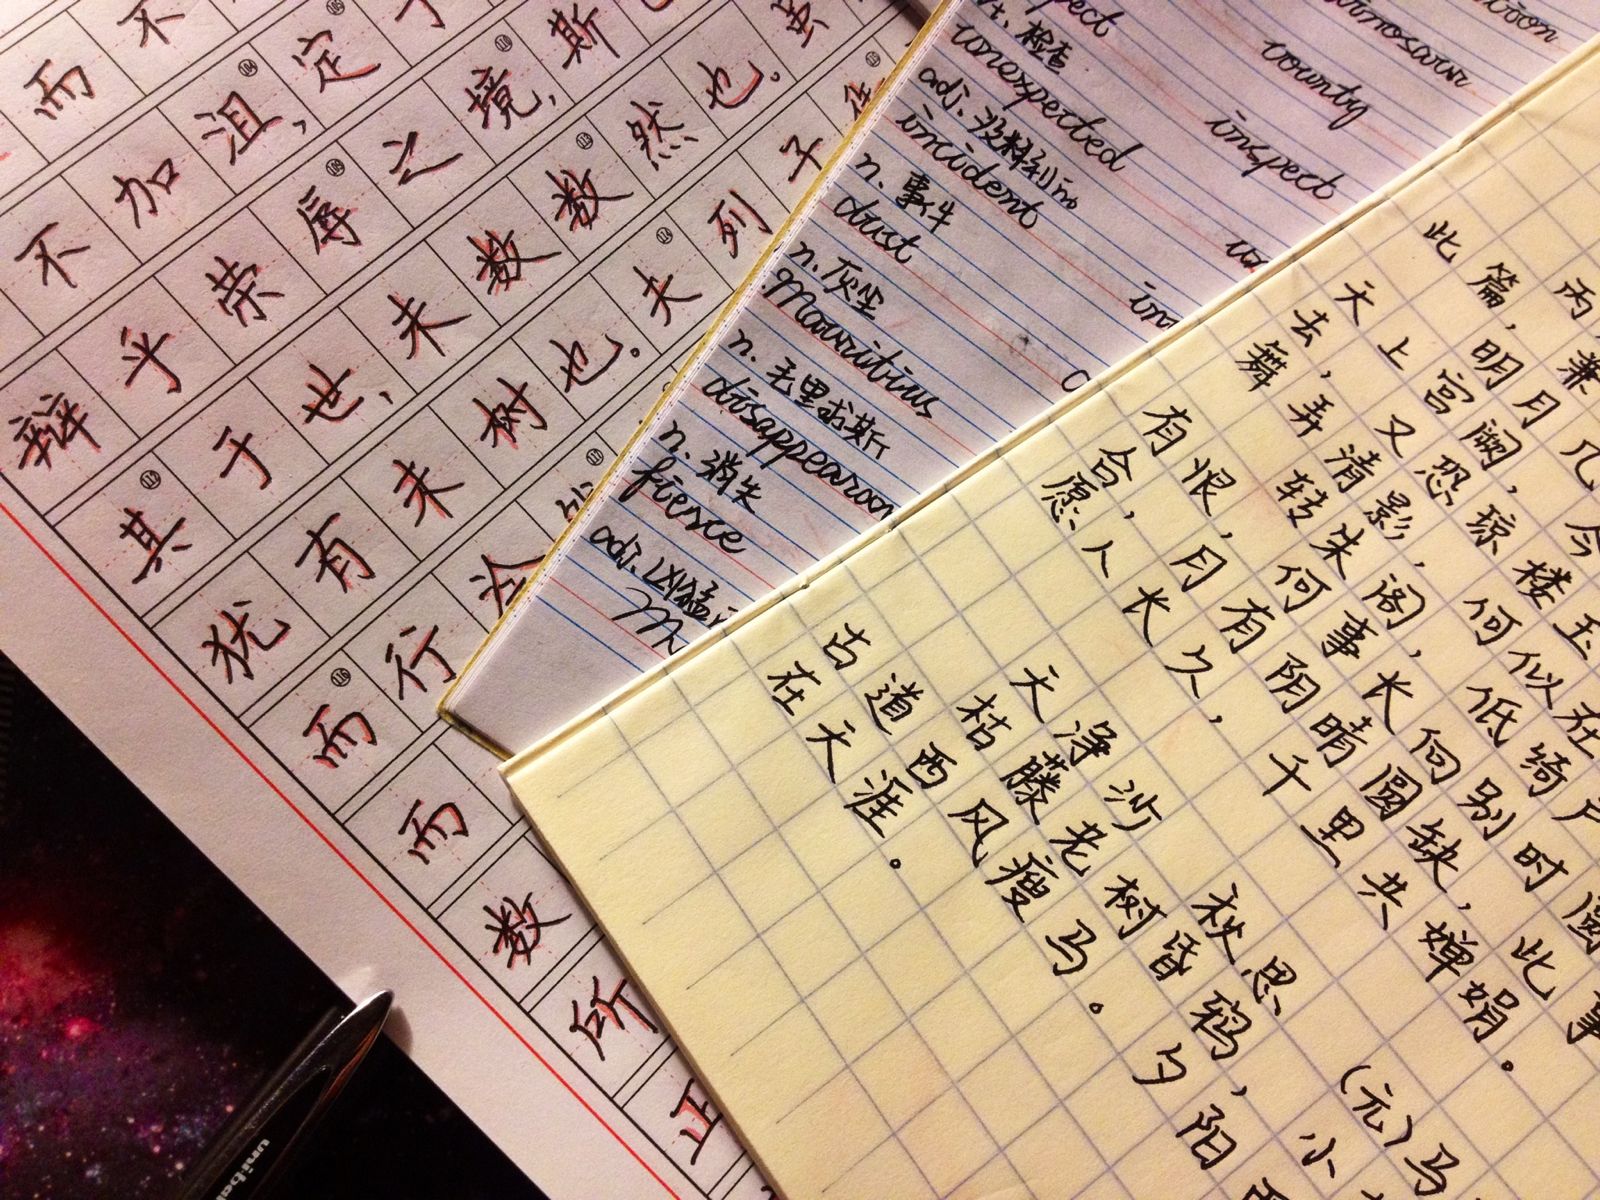 而不
不加沮,定
辩乎荣辱之境,斯
其于世,未数数然也。虽
犹有未树也。夫列子
而行泠然
而
数
所
正
vt. 检查
unexpected
adj. 没料到的
incident
n. 事件
dust
n. 灰尘
Mauritius
n. 毛里求斯
n. 消失
fierce
adj. 凶猛
county
inspect
丙
此篇,兼
明月几
天上宫阙,今
去,又恐琼楼玉
舞弄清影,何似在
转朱阁,低绮户
有恨,何事长向别时圆
合,月有阴晴圆缺,此事
愿人长久,千里共婵娟。
天净沙 秋思 (元)马
枯藤老树昏鸦,小
古道西风瘦马。夕阳西
在天涯。